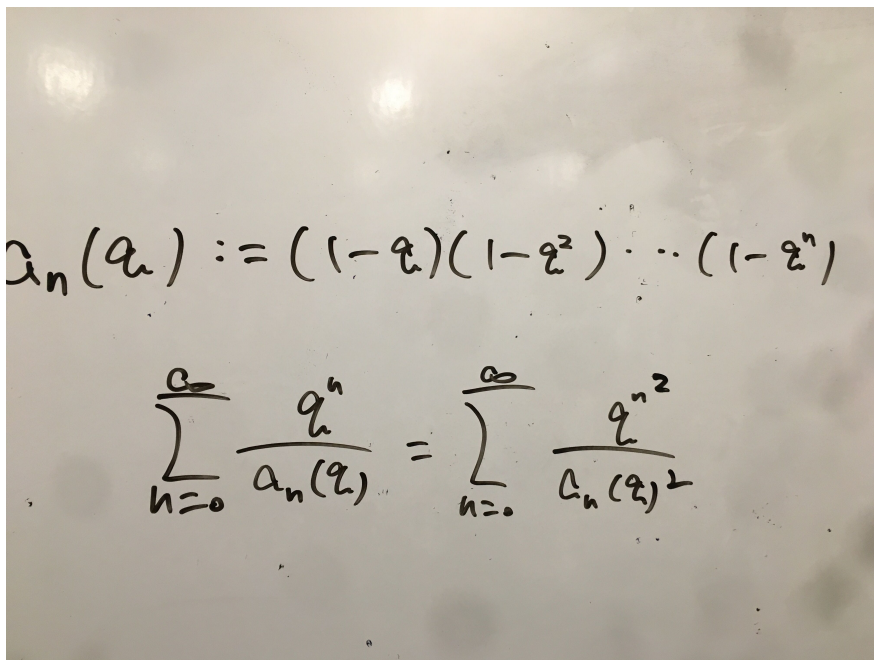 a_n(q) := (1-q)(1-q^2)···(1-q^n)
\sum_{n=0}^{\infty} \frac{q^n}{a_n(q)} = \sum_{n=0}^{\infty} \frac{q^{n^2}}{a_n(q)^2}